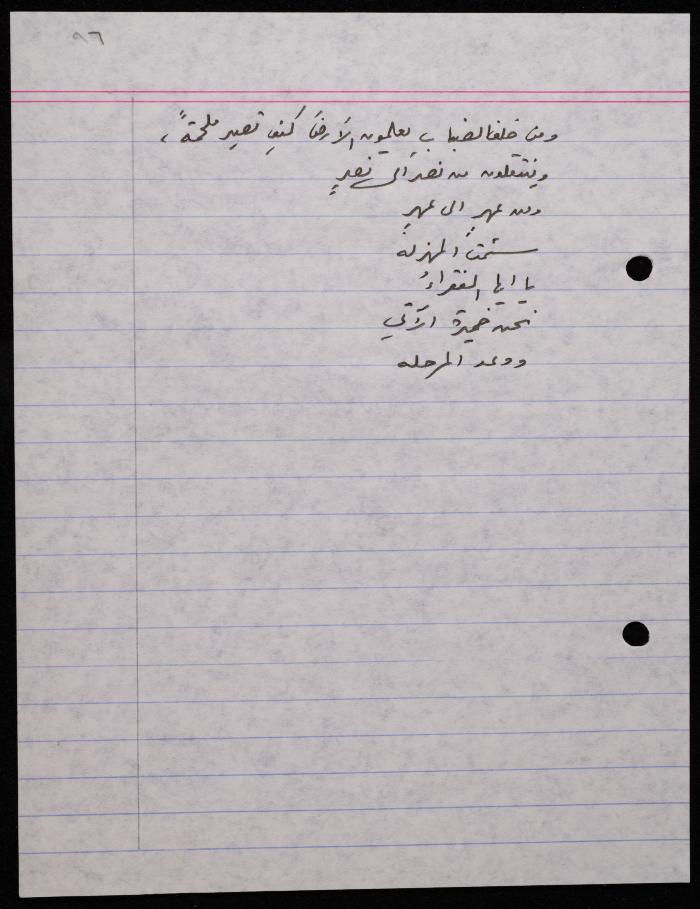 ٩٦
ومن خلف الضباب يعلمون الأرضَ كيف تصير ملحمةً،
وينتقلون من نصر الى نصرٍ
ومن عهرٍ الى عهرٍ
سئمت المهزلة
يا ايها الفقراءُ
نحن خميرة الآتي
ووعد المرحله